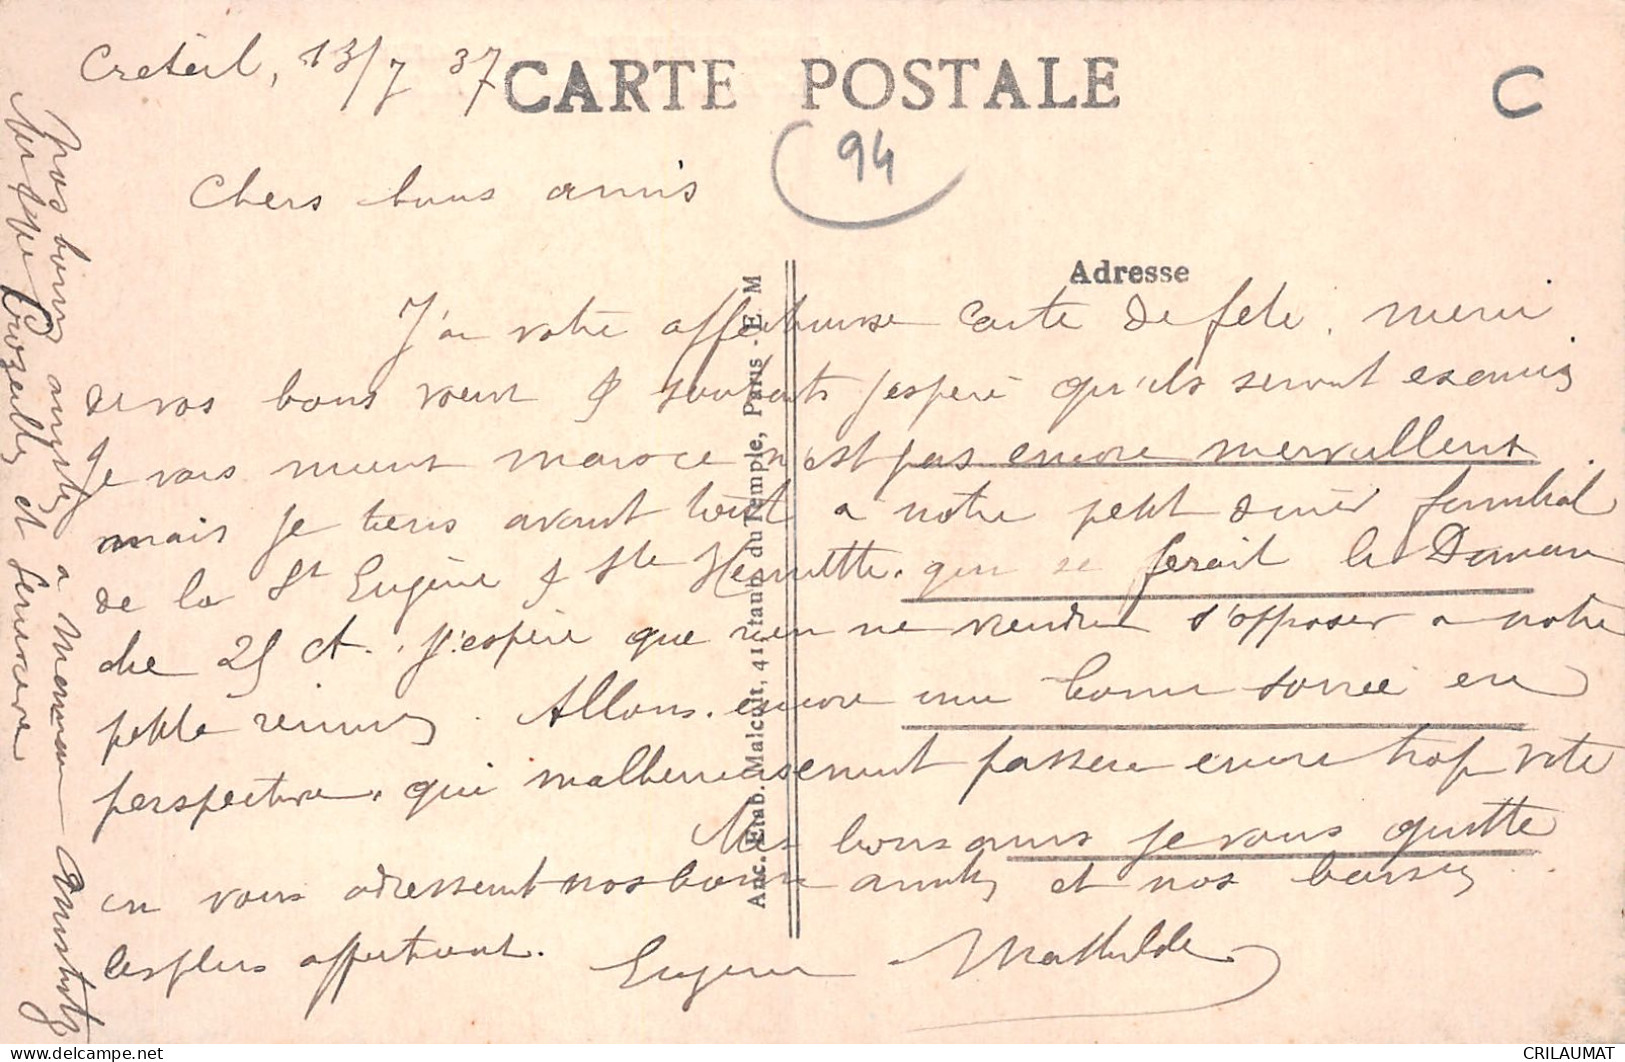 Creteil, 13/7 37
CARTE POSTALE
C
94
Chers bons amis
Adresse
J'ai votre affectueuse carte de fete. merci
de vos bons vœux & souhaits j'espere qu'ils seront examis
Je vais mieux mais ce n'est pas encore merveilleux
mais je tiens avant tout a notre petit diner familial
de la St Eugène & Ste Henriette. qui se ferait le Diman
che 25 ct. J'espère que rien ne viendra s'opposer a notre
petite reunion. Allons. encore une bonne soirée en
perspective. qui malheureusement passera encore trop vite
Mes bons amis je vous quitte
en vous adressant nos bonnes amities et nos baisers
les plus affectueux. Eugene Mathilde
Nos bonnes amities a Maman
et
Anc. Etab. Malcuit, 41, faub. du Temple, Paris - E. M
CRILAUMAT